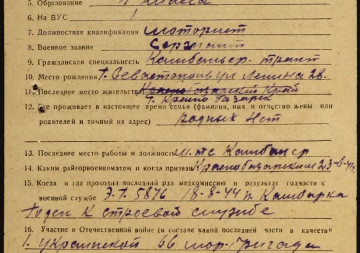 5. Образование 7 класса
6. На ВУС
7. Должностная квалификация моторист
8. Военное звание Сержант
9. Гражданская специальность Комбайнер. тракт
10. Место рождения г. Севастополь ул Ленина 28.
11. Последнее место жительства Край
г. Красно
12. Где проживает в настоящее время семья (фамилия, имя и отчество жены или
родителей и точный их адрес) родных нет
13. Последнее место работы и должность мтс Комбайнер
14. Каким райгорвоенкоматом и когда призван 23-8-41г.
15. Когда и где проходил последний раз медкомиссию и результат годности к
военной службе Э.Г. 5876 18-8-44 г. Камбарка
Годен к строевой службе
16. Участие в Отечественной войне (в составе какой последней части и в качестве
1 украинский 66 мор-бригада